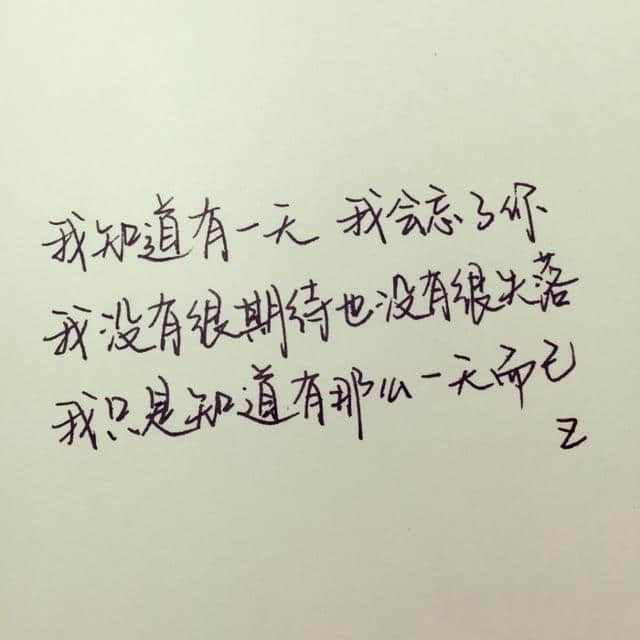 我知道有一天 我会忘了你
我没有很期待也没有很失落
我只是知道有那么一天而已
Z